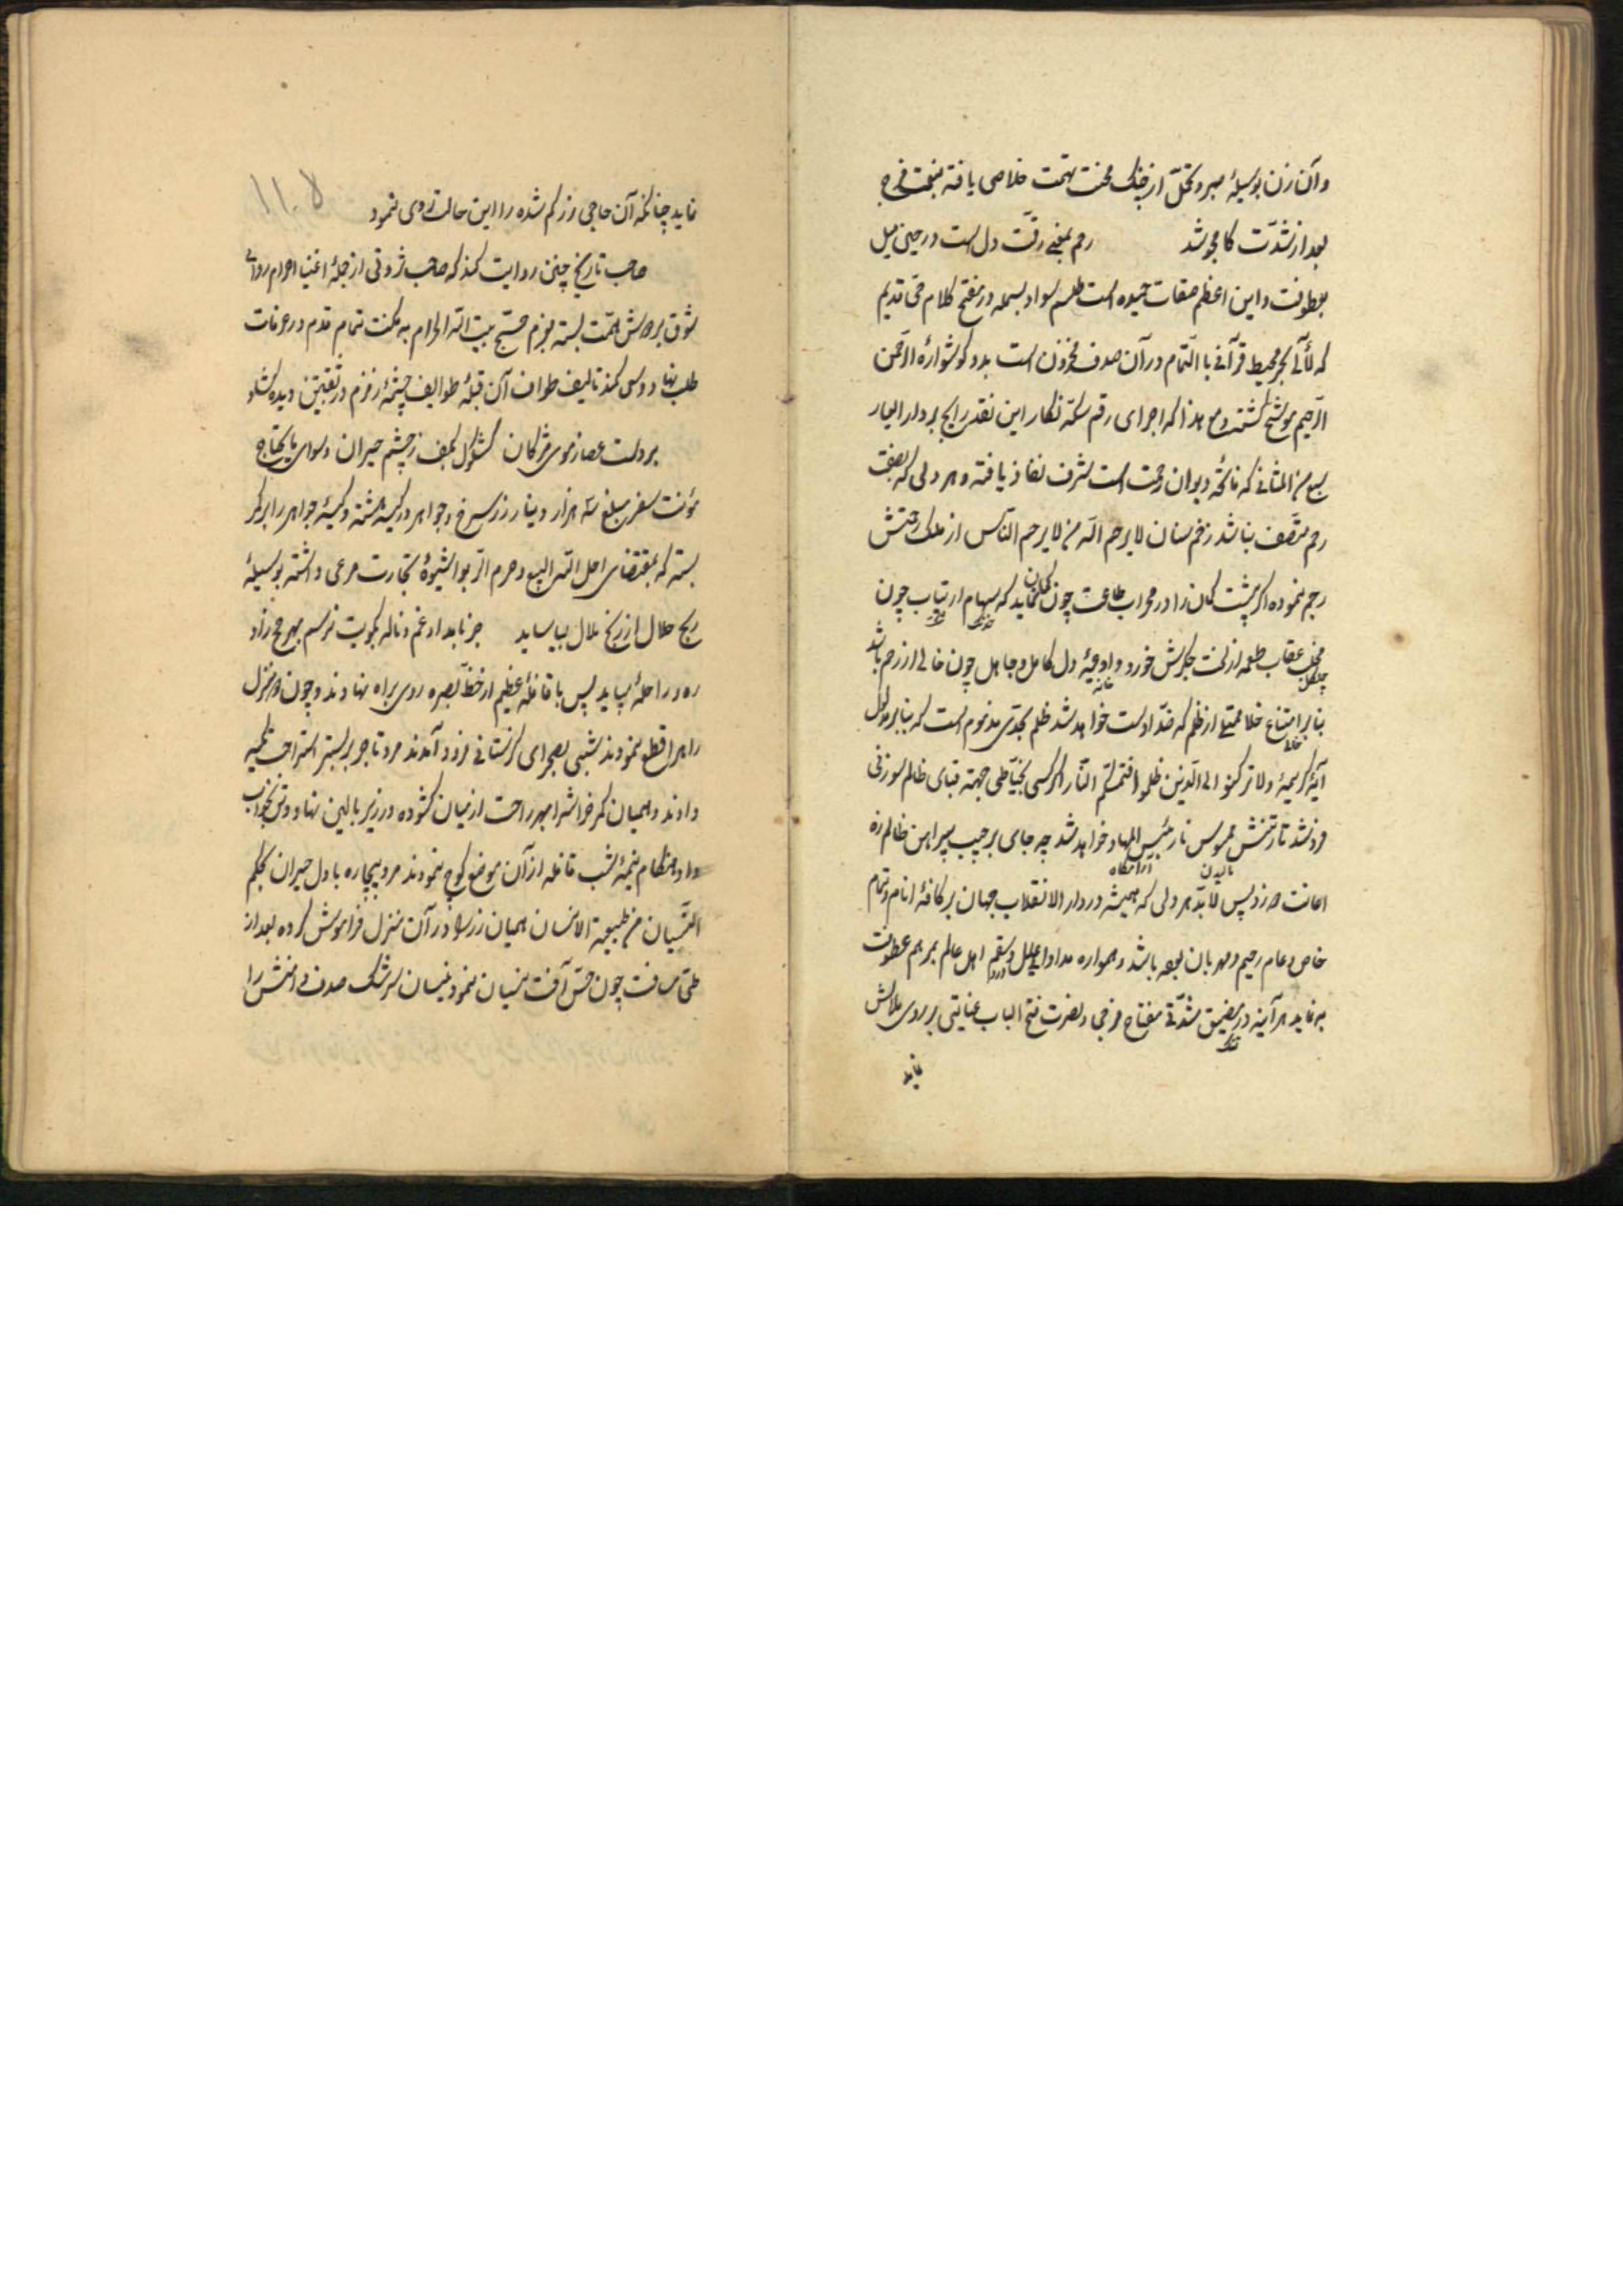 وآن زن بوسیلهٔ صبر و تحمّل از چنک محنت تهمت خلاصی یافته بنعمت فرح
بعد از شدّت کامجو شد رحم بمعنی رقّت دل است در حین میل
بعطوفت و این اعظم صفات حمیده است طلسم سواد بسمله در مفتح کلام حیّ قدیم
که لآلی بحر محیط قرآنی با التّمام در آن صدف مخزون است بدو کوشوارهٔ الرّحمن
الرّحیم موشّح کشته و مع هذا که اجرای رقم سکّه نکار این نقد رایج بر دار العیار
سبع من المثانی که فاتحهٔ دیوان رحمت است شرف نفاذ یافته و هر دلی که بصفت
رحم متّصف نباشد زخم سنان لا یرحم الله من لا یرحم النّاس از ملک رحمتش
رجم نموده اکر پشت کمان را در محراب طاعت چون کمان نماید که سهام ارتیاب چون
مخلب عقاب طعمه از لخت جکرش خورد و اوعیهٔ دل کامل و جاهل چون خالی از رحم باشد
چنکال خانه
بنا بر امتناع خلا ممتلی از ظلم که ضدّ اوست خواهد شد ظلم بحدّی مذموم است که بنا بر مدلول
خالی
آیهٔ کریمهٔ ولا ترکنوا الی الّذین ظلموا فتمسّکم النّار اکر کسی بخیّاطی جهة قبای ظالم سوزنی
فروشد تار تنش ممسوس نار بئس المهاد خواهد شد چه جای بر جیب پیراهن ظالم زه
مالیدن آرامکاه
اعانت ضرزد پس لابدّ هر دلی که همیشه در دار الانقلاب جهان بر کافهٔ انام و تمام
خاص و عام رحیم و مهربان بوده باشد و همواره مداوای علل و سقم اهل عالم بمرهم عطوفت
دردها
به نماید هر آینه در مضیق شدّتی مفتاح فرجی و نصرت فتح الباب عنایتی بر روی ملالش
تنک
نماید
نماید چنانکه آن حاجی زر کم شده را این حالت روی نمود
صاحب تاریخ چنین روایت کند که صاحب ثروتی از جملهٔ اغنیا احرام روای
شوق بر دوش همّت بسته بعزم حجّ بیت الله الحرام به مکنت تمام قدم در عرفات
طلب نهاد و سی کمند تالیف طواف آن قبلهٔ طوایف چشمهٔ زمزم در تفتیش دیده کشاد
بر دست عصا ز موی مژکان کشکول بکف ز چشم حیران و سوای مایحتاج
مؤنت سفر مبلغ سه هزار دینار زر سرخ و جواهر در کیسه هشته و کیسهٔ جواهر را بر کمر
بسته که بمقتضای احل الله البیع و حرم الرّبوا شیوهٔ تجارت مرعی داشته بوسیلهٔ
ربح حلال از رنج ملال بیاساید جز ناید از غم و ناله بکویت نرسم بهر حج زاد
ره و راحله می‌باید پس با قافلهٔ عظیم از خطّهٔ بصره روی براه نهادند و چون دو منزل
راه را قطع نمودند شبی بصحرای کرستانی فرود آمدند مرد تاجر بر بستر استراحت تکیه
دادند و همیان کمر خواش را بهر راحت از میان کشوده در زیر بالین نهاد و تن بخواب
داد هنکام نیمهٔ شب قافله از آن موضع کوچ نمودند مرد بیچاره با دل حیران بحکم
النّسیان من طبیعة الانسان همیان زر را در آن منزل فراموش کرده بعد از
طی مسافت چون حسّ آفت نسیان نمود نیسان سرشک صدف دامنش را